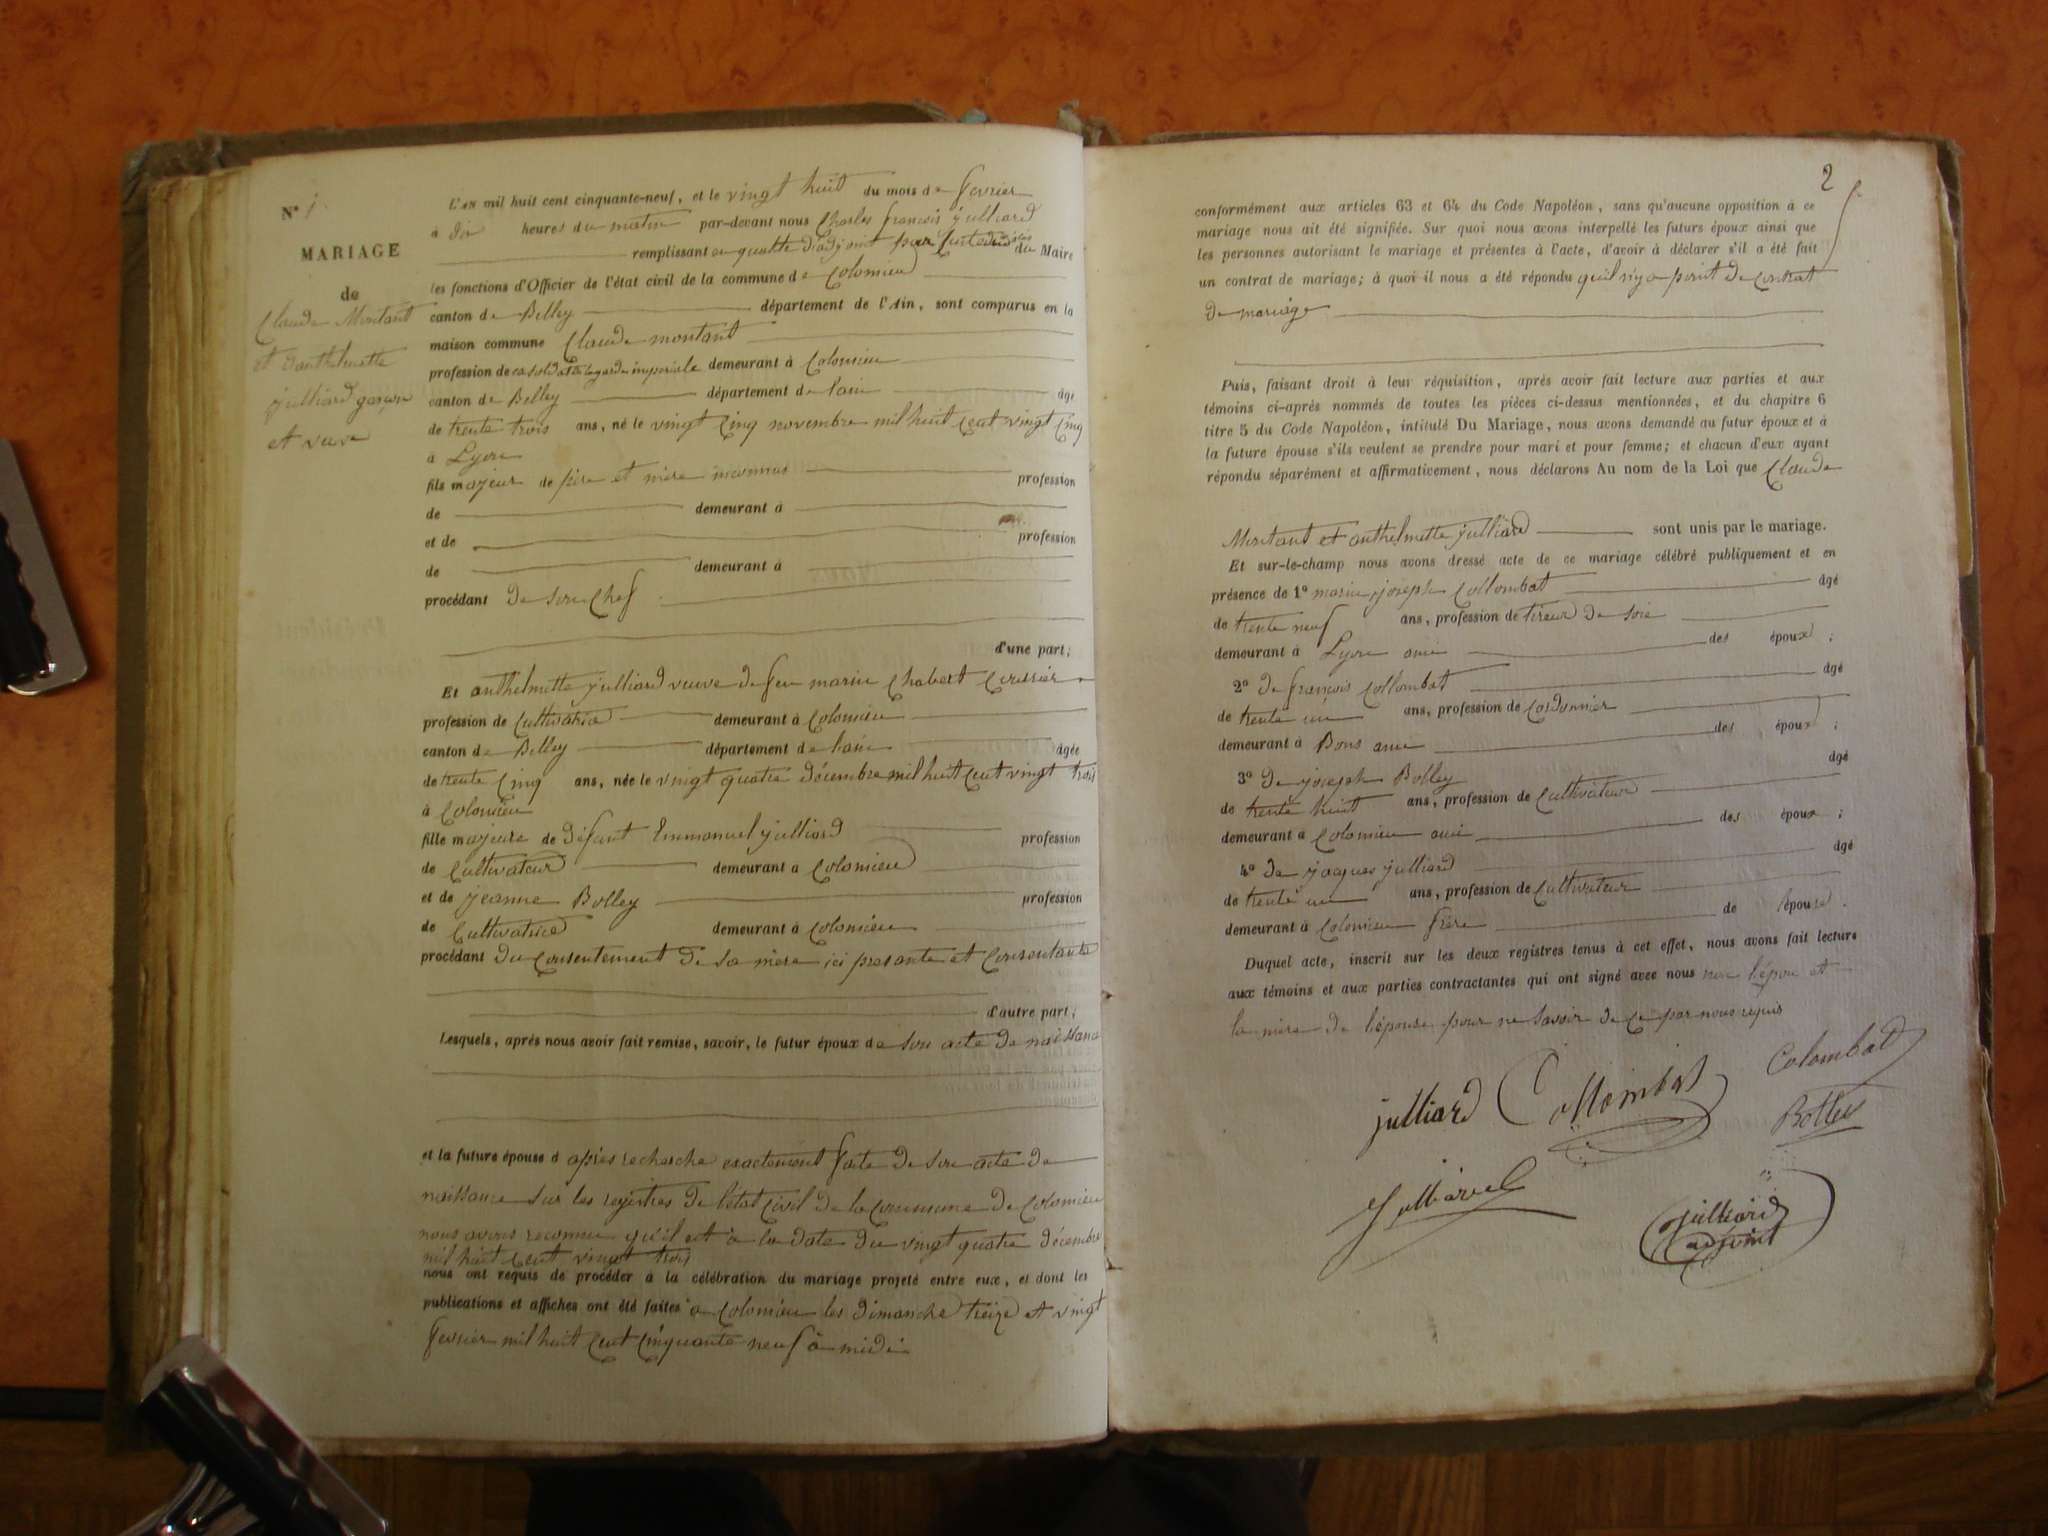 N° 1
MARIAGE
de
Claude Montant
et d'anthelmette
julliard garçon
et veuve
L'an mil huit cent cinquante-neuf, et le vingt huit du mois de fevrier
à dix heures du matin par-devant nous Charles francois julliard
remplissant en qualité d'adjoint par du Maire
les fonctions d'Officier de l'état civil de la commune de Colomieu
canton de Belley département de l'Ain, sont comparus en la
maison commune Claude montant
profession de soldat de la garde imperiale demeurant à Colomieu
canton de Belley département de l'ain âgé
de trente trois ans, né le vingt cinq novembre mil huit cent vingt cinq
à Lyon
fils majeur de père et mère inconnus profession
de demeurant à
et de profession
de demeurant à
procédant de son chef
d'une part;
Et anthelmette julliard veuve de feu marin Chabert Cursier
profession de Cultivatrice demeurant à Colomieu
canton de Belley département de l'ain âgée
de trente cinq ans, née le vingt quatre décembre mil huit cent vingt trois
à Colomieu
fille majeure de défunt Emmanuel julliard profession
de Cultivateur demeurant à Colomieu
et de jeanne Bolley profession
de Cultivatrice demeurant à Colomieu
procédant du consentement de sa mère ici presante et consentante
d'autre part;
Lesquels, après nous avoir fait remise, savoir, le futur époux de son acte de naissance
et la future épouse d après recherche exactement faite de son acte de
naissance sur les registres de l'état civil de la commune de Colomieu
nous avons reconnu qu'il est à la date du vingt quatre décembre
mil huit cent vingt trois
nous ont requis de procéder à la célébration du mariage projeté entre eux, et dont les
publications et affiches ont été faites à Colomieu les dimanche treize et vingt
fevrier mil huit cent cinquante neuf à midi
2
conformément aux articles 63 et 64 du Code Napoléon, sans qu'aucune opposition à ce
mariage nous ait été signifiée. Sur quoi nous avons interpellé les futurs époux ainsi que
les personnes autorisant le mariage et présentes à l'acte, d'avoir à déclarer s'il a été fait
un contrat de mariage; à quoi il nous a été répondu qu'il n'y a point de contrat
de mariage
Puis, faisant droit à leur réquisition, après avoir fait lecture aux parties et aux
témoins ci-après nommés de toutes les pièces ci-dessus mentionnées, et du chapitre 6
titre 5 du Code Napoléon, intitulé Du Mariage, nous avons demandé au futur époux et à
la future épouse s'ils veulent se prendre pour mari et pour femme; et chacun d'eux ayant
répondu séparément et affirmativement, nous déclarons Au nom de la Loi que Claude
Montant et anthelmette julliard sont unis par le mariage.
Et sur-le-champ nous avons dressé acte de ce mariage célébré publiquement et en
présence de 1° marin joseph Collombat âgé
de trente neuf ans, profession de tireur de soie
demeurant à Lyon ami des époux ;
2° de françois Collombat âgé
de trente un ans, profession de Cordonnier
demeurant à Bons ami des époux ;
3° de joseph Bolley âgé
de trente huit ans, profession de Cultivateur
demeurant à Colomieu ami des époux ;
4° de jacques julliard âgé
de trente un ans, profession de Cultivateur
demeurant à Colomieu frère de l'épouse.
Duquel acte, inscrit sur les deux registres tenus à cet effet, nous avons fait lecture
aux témoins et aux parties contractantes qui ont signé avec nous non l'épou et
la mère de l'épouse pour ne savoir de ce par nous requis
julliard Collombat Colombat
Bolley
Julliard
julliard
adjoint